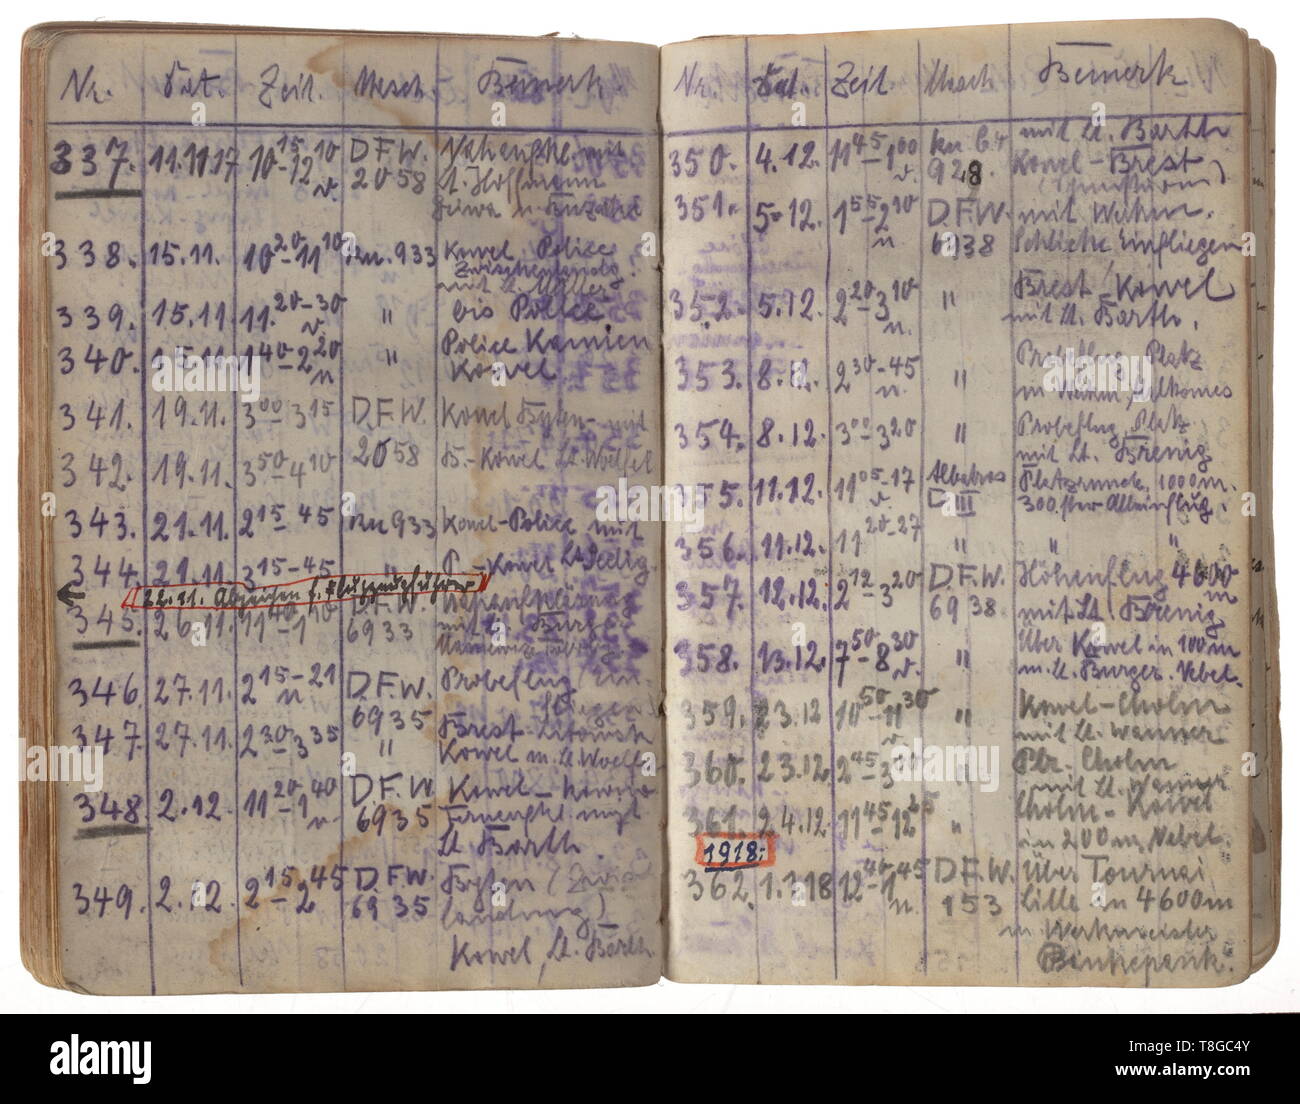 Nr. Dat. Zeit. Masch. Bemerk.
337. 11.11.17 10¹⁵-12¹⁰ v. D.F.W. 2058 mit
Lt. Hoffmann
338. 15.11. 10²⁰-11¹⁰ Ru. 933 Kowel Police
Zwischenlandg.
mit Lt. Müller
339. 15.11. 11.²⁰⁻³⁰ v. " bis Police
340. 15.11. 1⁴⁰-2²⁰ n " Police Kamien
Kowel
341. 19.11. 3⁰⁰-3¹⁵ D.F.W. Kowel Byten- mit
342. 19.11. 3⁵⁰-4¹⁰ 2058 B.-Kowel Lt. Woelfel
343. 21.11. 2¹⁵-⁴⁵ Ru 933 Kowel-Police mit
344. 21.11. 3¹⁵⁻⁴⁵ " P.-Kowel Lt. Seelig.
22.11. Abzeichen f. Flugzeugführer
345. 26.11. 11⁴⁰-1¹⁰ D.F.W. 6933
mit Lt. Burger
346. 27.11. 2¹⁵⁻²¹ n D.F.W. 6935 Probeflug (Ein-
fliegen)
347. 27.11. 2³⁰-3³⁵ " Brest-Litowsk
Kowel m. Lt. Woelfel
348. 2.12. 11²⁰-1⁴⁰ v. D.F.W. 6935 Kowel-
mit
Lt. Barth.
349. 2.12. 2¹⁵-2⁴⁵ D.F.W. 6935 Byten (
landung)
Kowel, Lt. Barth
Nr. Dat. Zeit. Masch. Bemerk
350. 4.12. 11⁴⁵-1⁰⁰ v. 928 mit Lt. Barth
Kowel-Brest
351. 5.12. 1⁵⁵-2¹⁰ n D.F.W. 6938 mit
Einfliegen
352. 5.12. 2²⁰-3¹⁰ n. " Brest/Kowel
mit Lt. Barth.
353. 8.12. 2³⁰⁻⁴⁵ n. " Probeflug, Platz
354. 8.12. 3⁰⁰-3²⁰ " Probeflug, Platz
mit Lt. Brenig
355. 11.12. 11⁰⁵⁻¹⁷ v Albatros D III Platzrunde, 1000m.
300. ster Alleinflug.
356. 11.12. 11²⁰⁻²⁷ " " "
357. 12.12. 2¹²-3²⁰ D.F.W. 6938. Höhenflug 4600 m
mit Lt. Brenig
358. 13.12. 7⁵⁰-8³⁰ v. " Über Kowel in 100m
m. Lt. Burger. Nebel.
359. 23.12 10⁵⁰-11³⁰ v " Kowel-Cholm
mit Lt. Wanner
360. 23.12. 2⁴⁵-3¹⁰ " Plr. Cholm
mit Lt. Wanner
361. 24.12. 11⁴⁵-12²⁵ " Cholm-Kowel
in 200m, Nebel.
1918:
362. 1.1.18 12⁴⁰-1⁴⁵ n. D.F.W. 153 Über Tournai
Lille in 4600m
m Werkmeister
alamy
Image ID: T8GC4Y
www.alamy.com